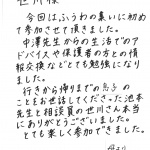 世川様
今回はふうわの集いに初め
て参加させて頂きました。
中澤先生からの生活でのア
ドバイスや保護者の方との情
報交換などとても勉強になり
ました。
行きから帰りまでの
のことをお世話してくださった池本
先生と相談員の世川さん本当
にありがとうございました。
とても楽しく参加できました。
母より